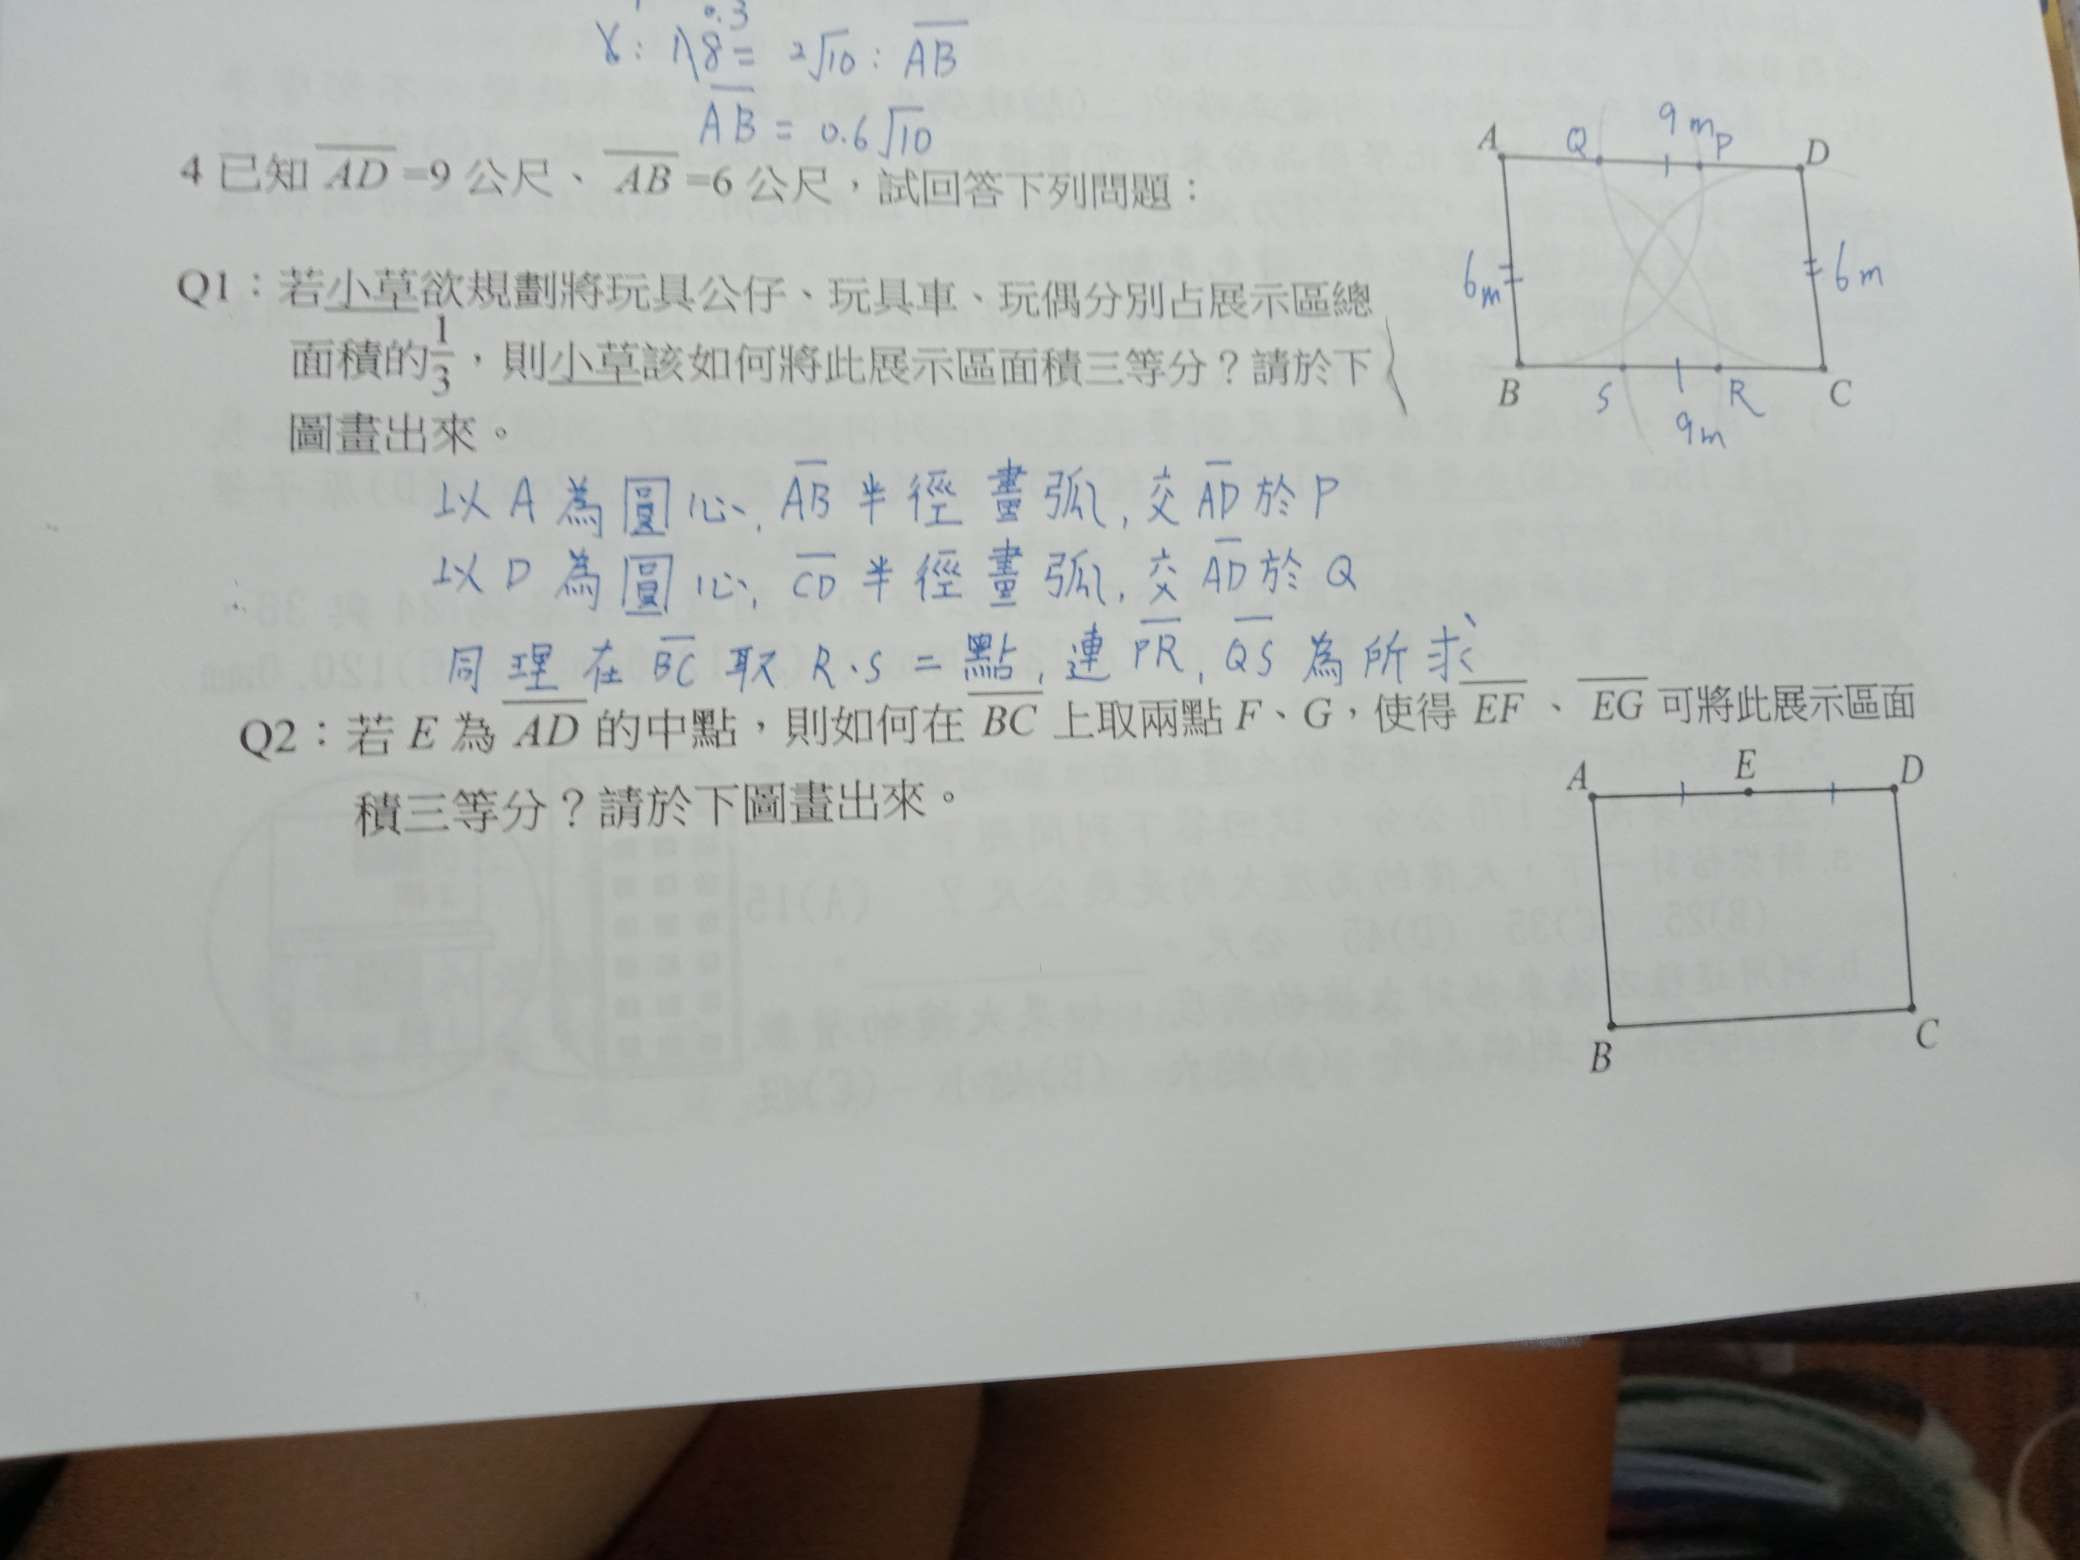 0.3
8 = 2√10 : AB
AB = 0.6√10
4 已知 AD =9 公尺、 AB =6 公尺，試回答下列問題：
A Q 9m P D
6m 6m
B S R C
9m
Q1：若小草欲規劃將玩具公仔、玩具車、玩偶分別占展示區總
面積的1/3，則小草該如何將此展示區面積三等分？請於下
圖畫出來。
以 A 為圓心, AB 半徑畫弧, 交 AD 於 P
以 D 為圓心, CD 半徑畫弧, 交 AD 於 Q
同理在 BC 取 R、S 二點, 連 PR, QS 為所求
Q2：若 E 為 AD 的中點，則如何在 BC 上取兩點 F、G，使得 EF 、 EG 可將此展示區面
積三等分？請於下圖畫出來。
A E D
B C